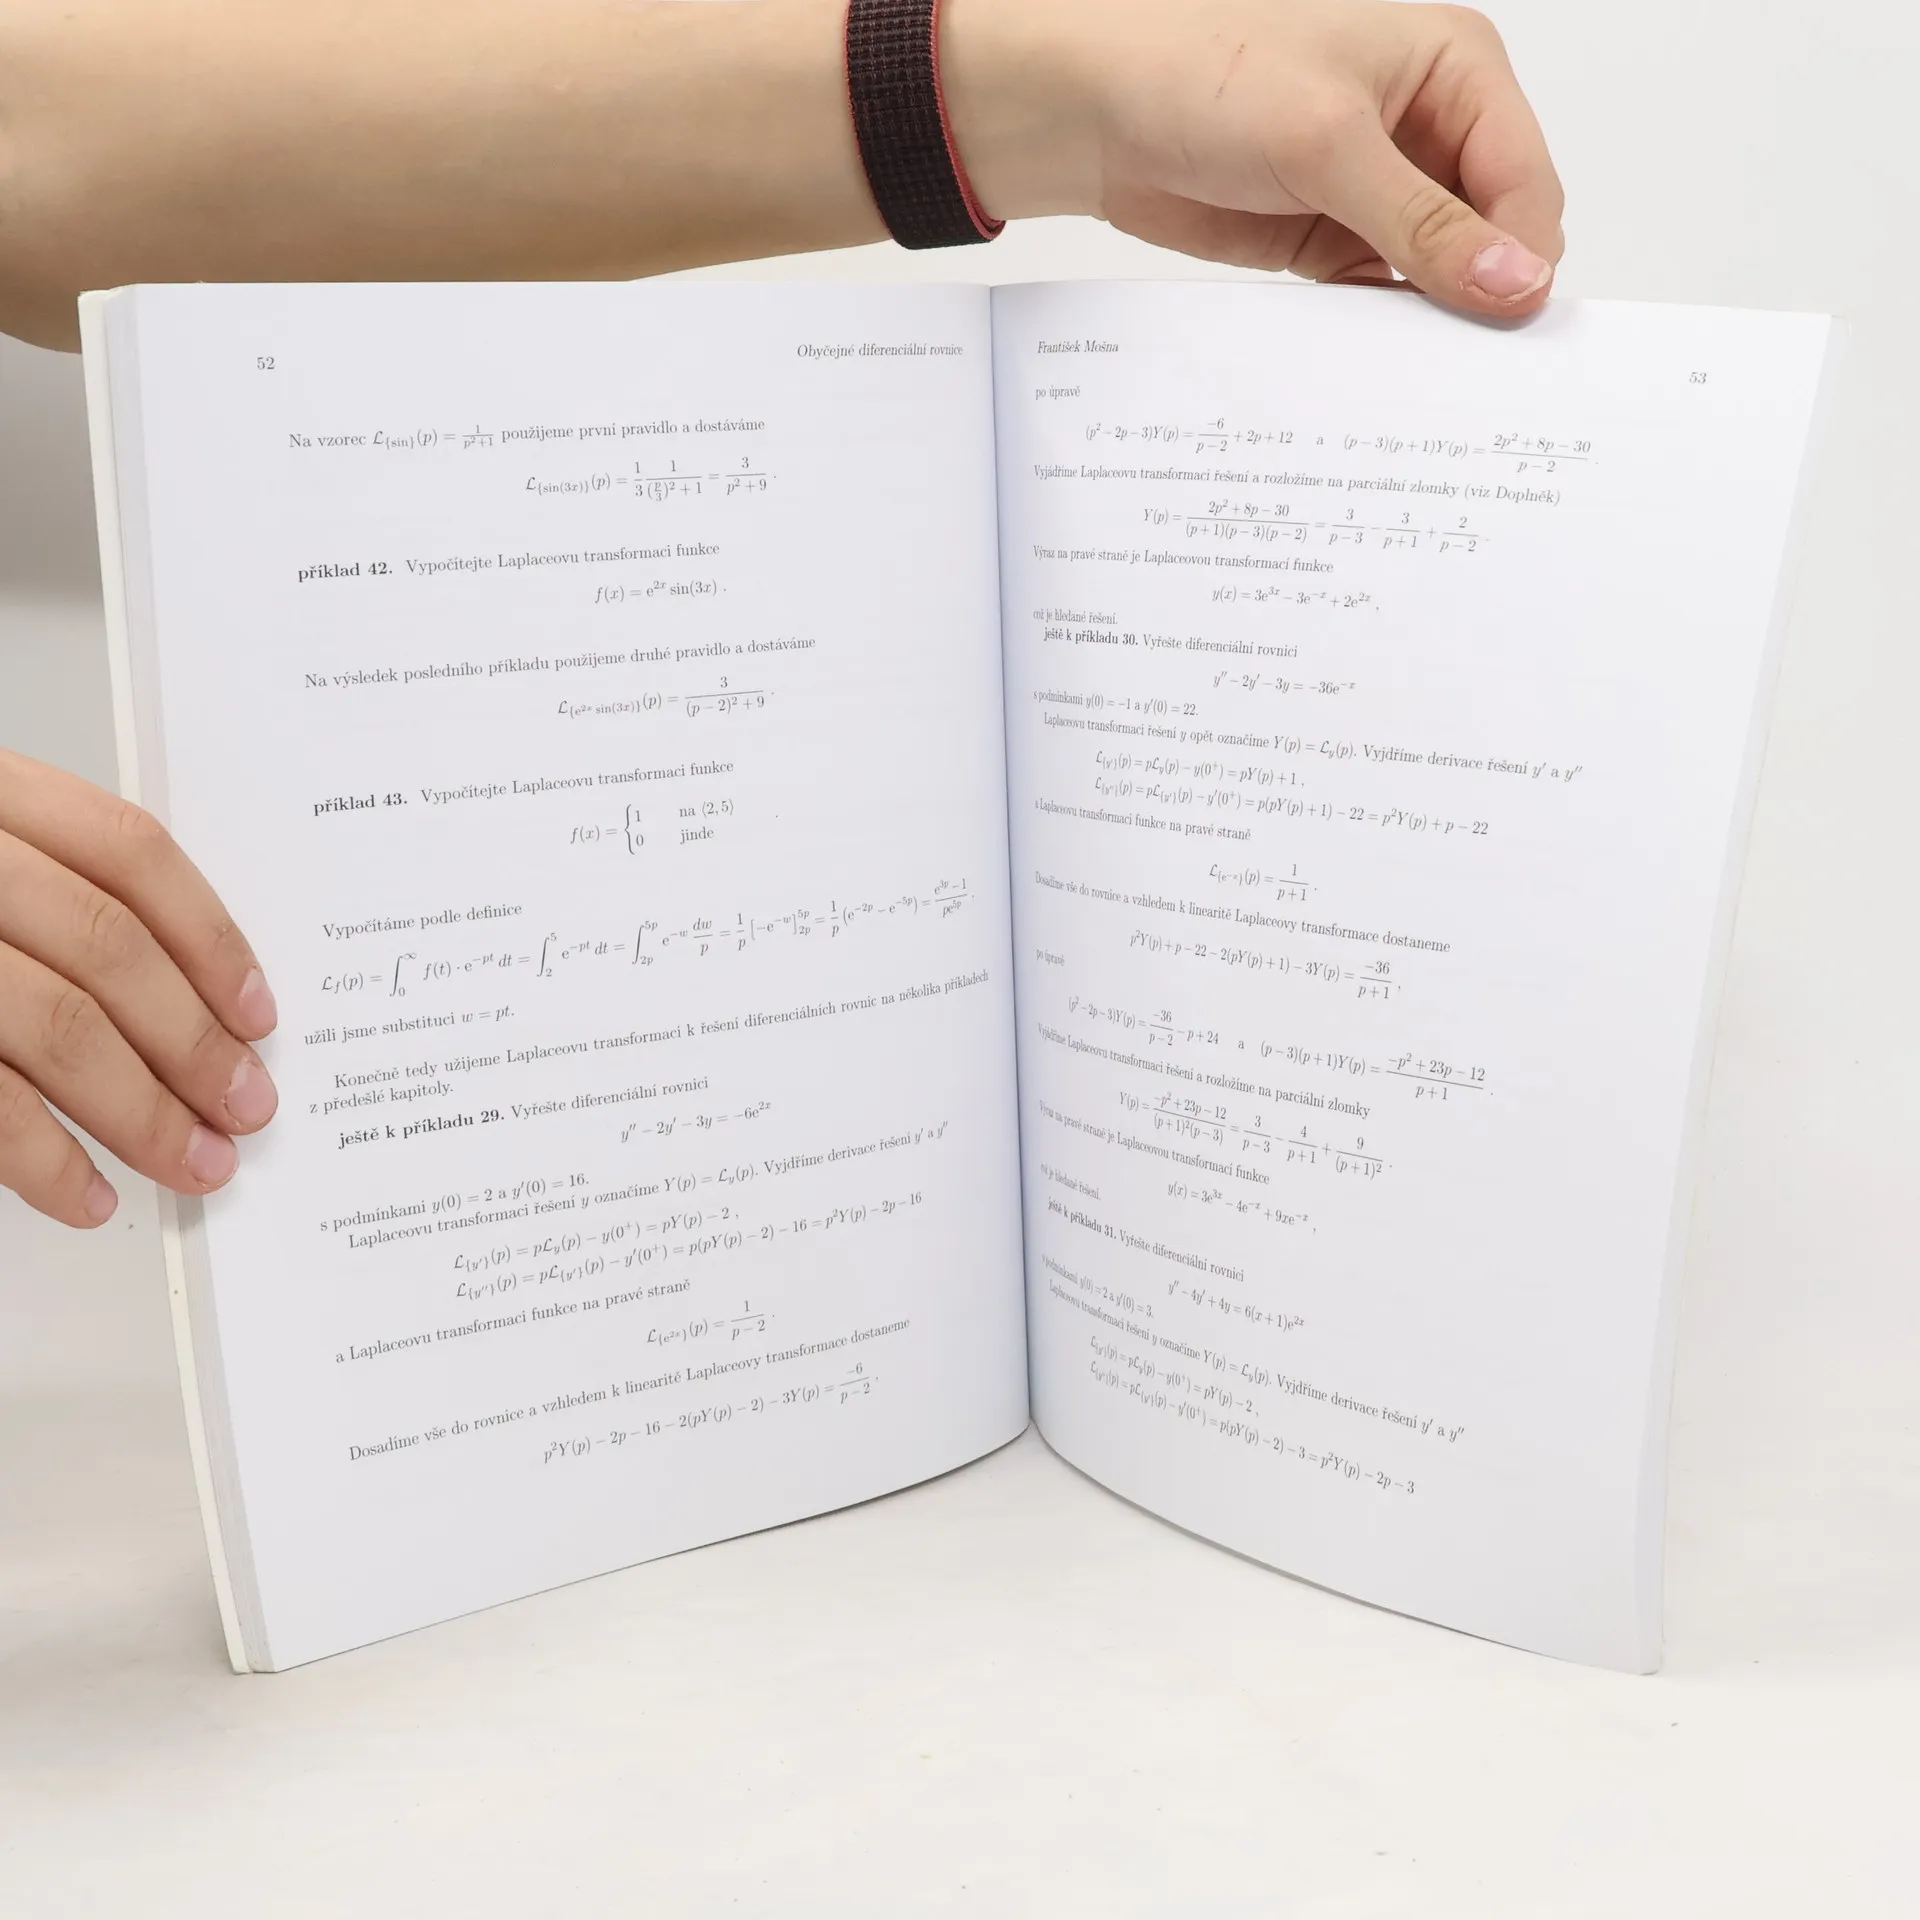 52
Obyčejné diferenciální rovnice
Na vzorec ℒ_{sin}(p) = 1/(p²+1) použijeme první pravidlo a dostáváme
ℒ_{sin(3x)}(p) = 1/3 · 1/((p/3)² + 1) = 3/(p² + 9) .
příklad 42. Vypočítejte Laplaceovu transformaci funkce
f(x) = e^{2x} sin(3x) .
Na výsledek posledního příkladu použijeme druhé pravidlo a dostáváme
ℒ_{e^{2x} sin(3x)}(p) = 3/((p − 2)² + 9) .
příklad 43. Vypočítejte Laplaceovu transformaci funkce
f(x) = { 1 na ⟨2, 5⟩
0 jinde .
Vypočítáme podle definice
ℒ_f(p) = ∫_0^∞ f(t) · e^{−pt} dt = ∫_2^5 e^{−pt} dt = ∫_{2p}^{5p} e^{−w} dw/p = 1/p [−e^{−w}]_{2p}^{5p} = 1/p (e^{−2p} − e^{−5p}) = (e^{3p} − 1)/(pe^{5p}) .
užili jsme substituci w = pt.
Konečně tedy užijeme Laplaceovu transformaci k řešení diferenciálních rovnic na několika příkladech
z předešlé kapitoly.
ještě k příkladu 29. Vyřešte diferenciální rovnici
y″ − 2y′ − 3y = −6e^{2x}
s podmínkami y(0) = 2 a y′(0) = 16.
Laplaceovu transformaci řešení y označíme Y(p) = ℒ_y(p). Vyjdříme derivace řešení y′ a y″
ℒ_{y′}(p) = pℒ_y(p) − y(0⁺) = pY(p) − 2 ,
ℒ_{y″}(p) = pℒ_{y′}(p) − y′(0⁺) = p(pY(p) − 2) − 16 = p²Y(p) − 2p − 16
a Laplaceovu transformaci funkce na pravé straně
ℒ_{e^{2x}}(p) = 1/(p − 2) .
Dosadíme vše do rovnice a vzhledem k linearitě Laplaceovy transformace dostaneme
p²Y(p) − 2p − 16 − 2(pY(p) − 2) − 3Y(p) = −6/(p − 2) ,
František Mošna
53
po úpravě
(p² − 2p − 3)Y(p) = −6/(p − 2) + 2p + 12 a (p − 3)(p + 1)Y(p) = (2p² + 8p − 30)/(p − 2) .
Vyjádříme Laplaceovu transformaci řešení a rozložíme na parciální zlomky (viz Doplněk)
Y(p) = (2p² + 8p − 30)/((p + 1)(p − 3)(p − 2)) = 3/(p − 3) − 3/(p + 1) + 2/(p − 2) .
Výraz na pravé straně je Laplaceovou transformací funkce
y(x) = 3e^{3x} − 3e^{−x} + 2e^{2x} ,
což je hledané řešení.
ještě k příkladu 30. Vyřešte diferenciální rovnici
y″ − 2y′ − 3y = −36e^{−x}
s podmínkami y(0) = −1 a y′(0) = 22.
Laplaceovu transformaci řešení y opět označíme Y(p) = ℒ_y(p). Vyjdříme derivace řešení y′ a y″
ℒ_{y′}(p) = pℒ_y(p) − y(0⁺) = pY(p) + 1 ,
ℒ_{y″}(p) = pℒ_{y′}(p) − y′(0⁺) = p(pY(p) + 1) − 22 = p²Y(p) + p − 22
a Laplaceovu transformaci funkce na pravé straně
ℒ_{e^{−x}}(p) = 1/(p + 1) .
Dosadíme vše do rovnice a vzhledem k linearitě Laplaceovy transformace dostaneme
p²Y(p) + p − 22 − 2(pY(p) + 1) − 3Y(p) = −36/(p + 1) ,
po úpravě
(p² − 2p − 3)Y(p) = −36/(p − 2) − p + 24 a (p − 3)(p + 1)Y(p) = (−p² + 23p − 12)/(p + 1) .
Vyjádříme Laplaceovu transformaci řešení a rozložíme na parciální zlomky
Y(p) = (−p² + 23p − 12)/((p + 1)²(p − 3)) = 3/(p − 3) − 4/(p + 1) + 9/(p + 1)² .
Výraz na pravé straně je Laplaceovou transformací funkce
y(x) = 3e^{3x} − 4e^{−x} + 9xe^{−x} ,
což je hledané řešení.
ještě k příkladu 31. Vyřešte diferenciální rovnici
y″ − 4y′ + 4y = 6(x + 1)e^{2x}
s podmínkami y(0) = 2 a y′(0) = 3.
Laplaceovu transformaci řešení y označíme Y(p) = ℒ_y(p). Vyjdříme derivace řešení y′ a y″
ℒ_{y′}(p) = pℒ_y(p) − y(0⁺) = pY(p) − 2 ,
ℒ_{y″}(p) = pℒ_{y′}(p) − y′(0⁺) = p(pY(p) − 2) − 3 = p²Y(p) − 2p − 3